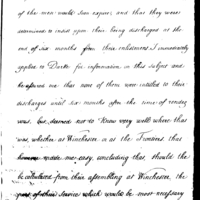 of the men would soon expire; and that they were
determined to insist upon their being discharged at the
end of six months from their enlistment I immediately
applied to Darke for information on this subject and
he assured me that none of them were intitled to their
discharges until six months after the time of rendez
vous, but seemed not to know very well where that
was, whether at Winchester or at the Frontiers. this
made me easy, concluding that, should the
be calculated from their assembling at Winchester, the
part of their service which would be most necessary